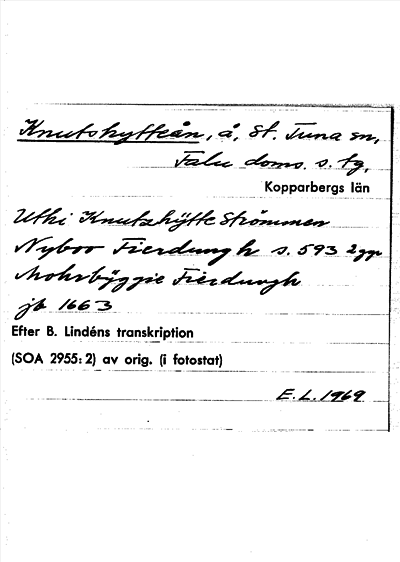 Knutshytteån, å, St. Tuna sn,
Falu doms. s. tg,
Kopparbergs län
Uthi Knutzhÿtte Strömmen
Nyboo Fierdungh s. 593 2gg
Mohrbÿggie Fierdungh
jb 1663
Efter B. Lindéns transkription
(SOA 2955:2) av orig. (i fotostat)
E.L. 1969